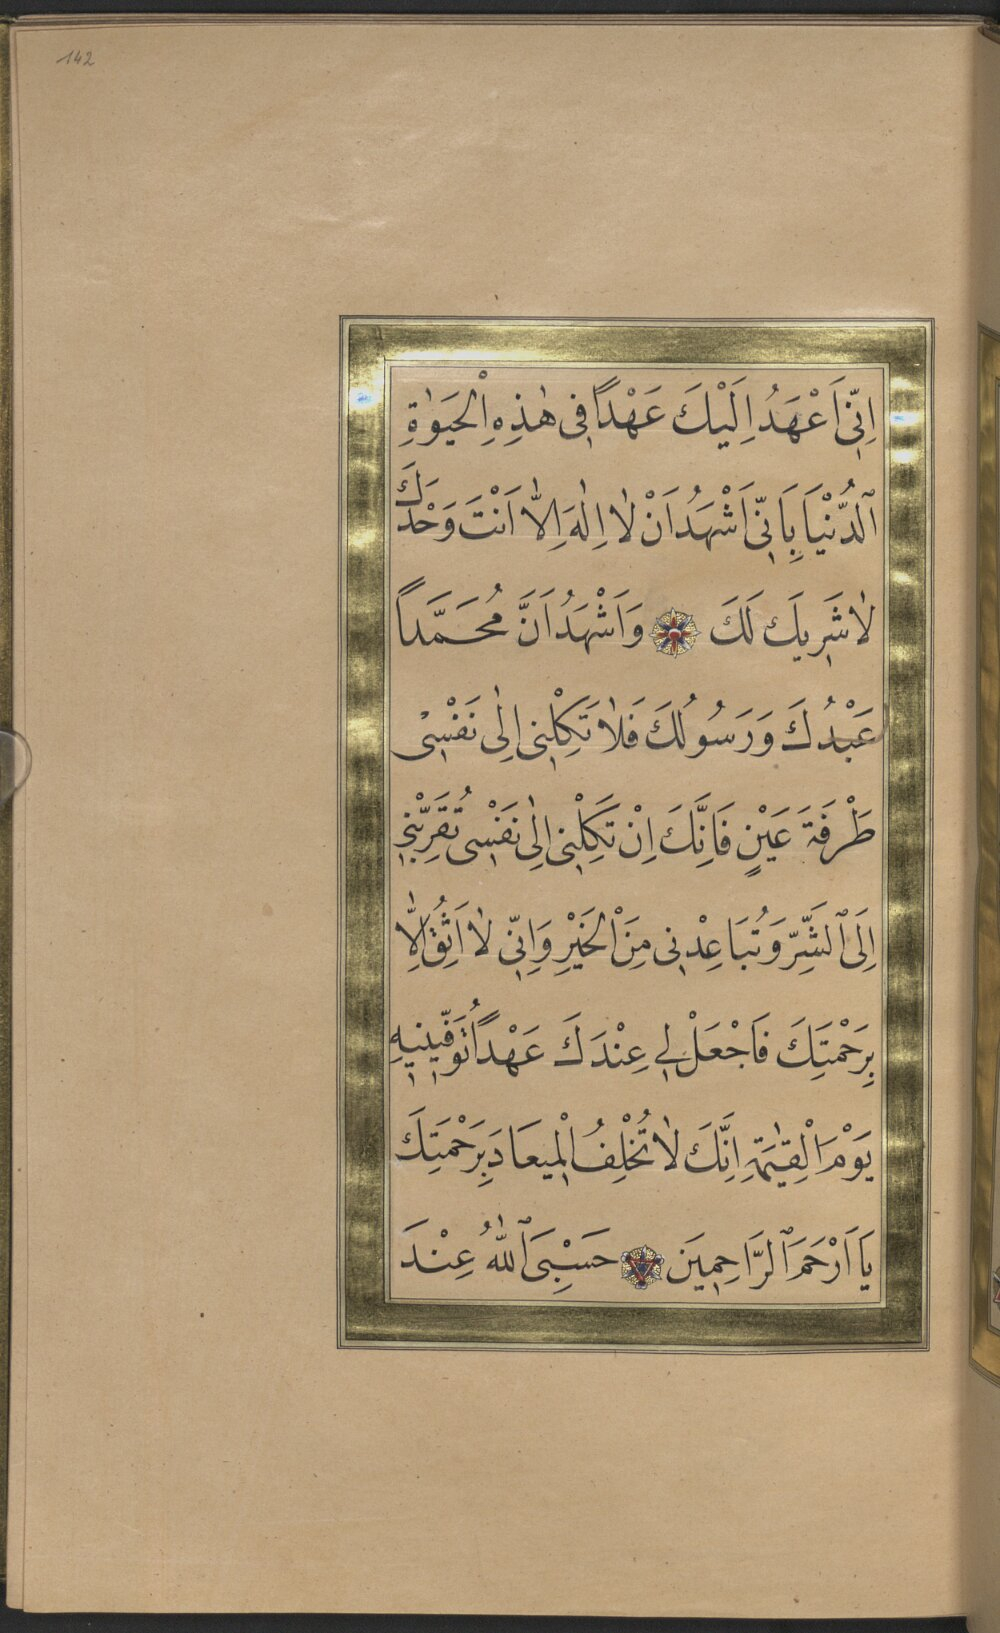 142
اِنّٖى اَعْهَدُ اِلَيْكَ عَهْدًا فٖى هٰذِهِ الْحَيَوٰةِ
ٱلدُّنْيَا بِاَنّٖى اَشْهَدُ اَنْ لَا اِلٰهَ اِلَّا اَنْتَ وَحْدَكَ
لَا شَرٖيكَ لَكَ وَاَشْهَدُ اَنَّ مُحَمَّدًا
عَبْدُكَ وَرَسُولُكَ فَلَا تَكِلْنٖى اِلٰى نَفْسٖى
طَرْفَةَ عَيْنٍ فَاِنَّكَ اِنْ تَكِلْنٖى اِلٰى نَفْسٖى تُقَرِّبْنٖى
اِلَى ٱلشَّرِّ وَتُبَاعِدْنٖى مِنَ الْخَيْرِ وَاِنّٖى لَا اَثِقُ اِلَّا
بِرَحْمَتِكَ فَاجْعَلْ لٖى عِنْدَكَ عَهْدًا تُوَفّٖينٖيهِ
يَوْمَ الْقِيٰمَةِ اِنَّكَ لَا تُخْلِفُ الْمٖيعَادَ بِرَحْمَتِكَ
يَا اَرْحَمَ ٱلرَّاحِمٖينَ حَسْبِىَ ٱللّٰهُ عِنْدَ